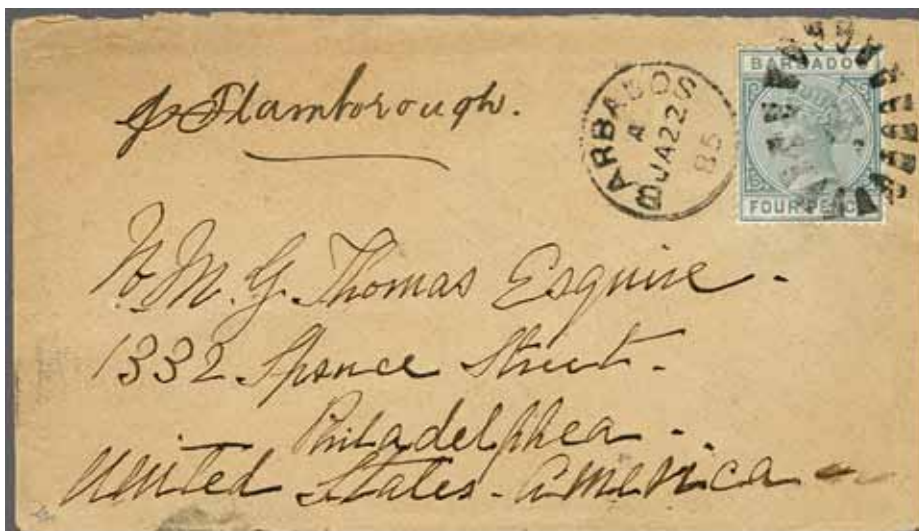 BARBADOS
p Flamborough.
BARBADOS
A
JA 22
85
FOUR PENCE
W. M. G. Thomas Esquire -
1332 Spruce Street -
Philadelphea -
United States - America -